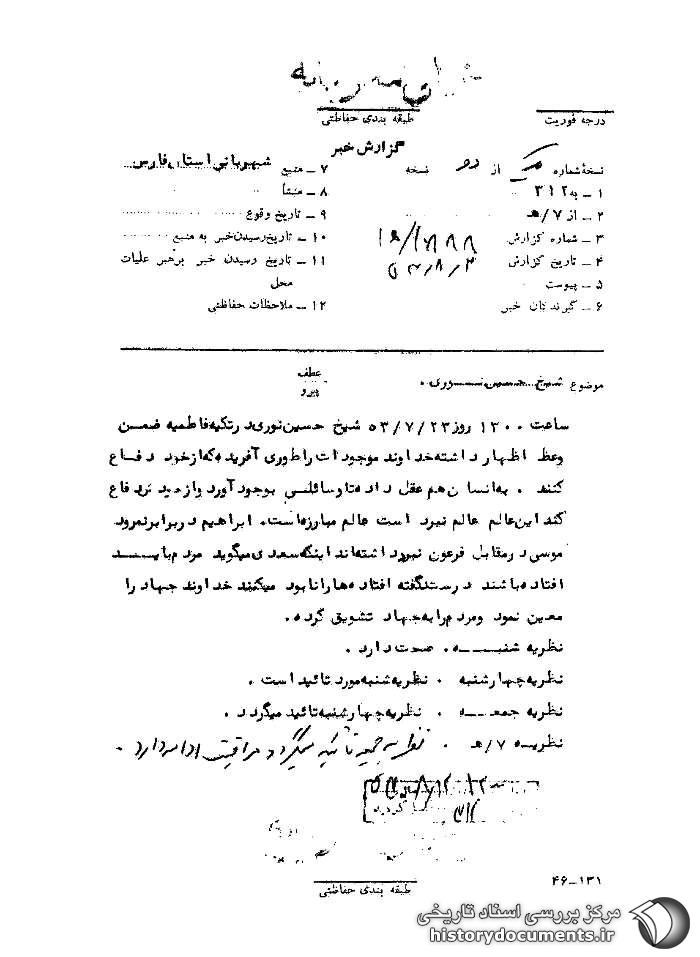 طبقه بندی حفاظتی
درجه فوریت
گزارش خبر
نسخهٔ شماره یک از دو نسخه
۷ ــ منبع شهربانی استان فارس
۱ ــ به ۳۱۲
۸ ــ منشأ
۲ ــ از ۷/هـ
۹ ــ تاریخ وقوع
۳ ــ شماره گزارش
۱۰ ــ تاریخ رسیدن خبر به منبع
۴ ــ تاریخ گزارش ۵۳/۸/۳
۱۱ ــ تاریخ رسیدن خبر برهبر عملیات محل
۵ ــ پیوست
۶ ــ گیرندگان خبر
۱۲ ــ ملاحظات حفاظتی
عطف
پیرو
موضوع شیخ حسین نوری .
ساعت ۱۲۰۰ روز ۵۳/۷/۲۳ شیخ حسین نوری در تکیه فاطمیه ضمن
وعظ اظهار داشته خداوند موجودات را طوری آفریده که از خود دفاع
کنند . به انسان هم عقل داده تا وسائلی بوجود آورد و از خود دفاع
کند این عالم عالم نبرد است عالم مبارزه است. ابراهیم در برابر نمرود
موسی در مقابل فرعون نبرد داشته اند اینکه سعدی میگوید مردم بایستد
افتاده باشند درست نگفته افتاده ها را نابود میکنند خداوند جهاد را
معین نمود و مردم را به جهاد تشویق کرده .
نظریه شنبــه . صحت دارد .
نظریه چهارشنبه . نظریه شنبه مورد تائید است .
نظریه جمعــه . نظریه چهارشنبه تائید میگردد .
نظریــه ۷/هـ . نظریه جمعه تأیید میگردد مراقبت ادامه دارد .
۴۶ــ۱۳۱
طبقه بندی حفاظتی
مرکز بررسی اسناد تاریخی
historydocuments.ir